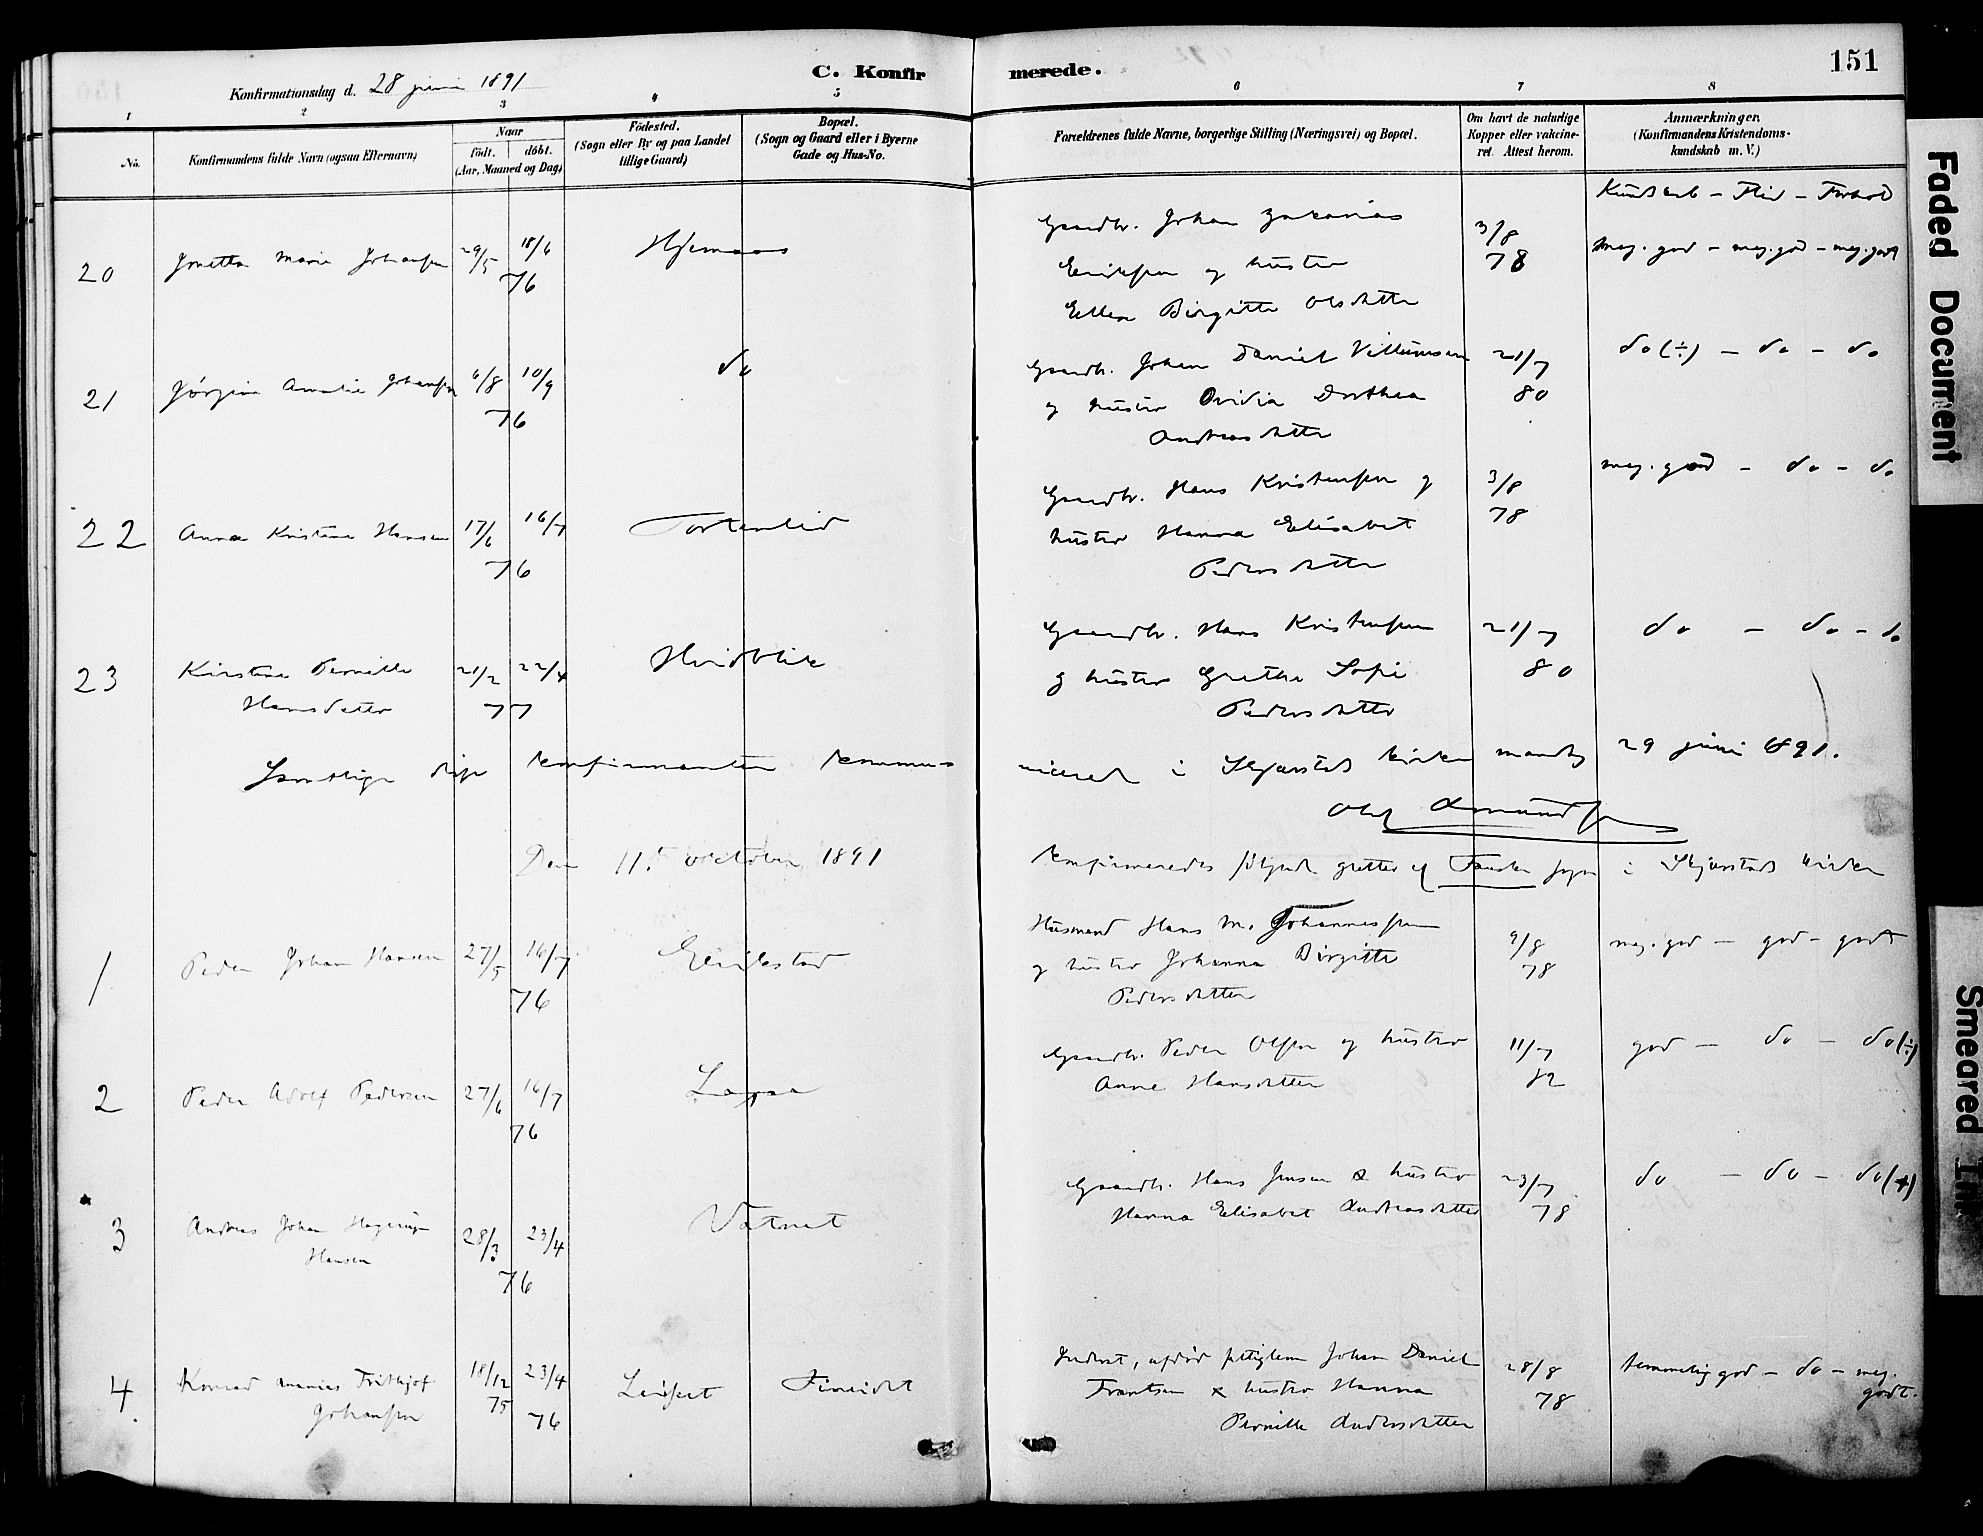 151
C. Konfirmerede.
Konfirmationsdag d. 28 juni 1891
1 2 3 4 5 6 7 8
No. Konfirmandens fulde Navn (ogsaa Efternavn)
Naar
födt. döbt.
(Aar, Maaned og Dag)
Födested.
(Sogn eller By og paa Landet tillige Gaard)
Bopæl.
(Sogn og Gaard eller i Byerne Gade og Hus-No.
Forældrenes fulde Navne, borgerlige Stilling (Næringsvei) og Bopæl.
Om havt de naturlige Kopper eller vakcineret. Attest herom.
Anmærkninger.
(Konfirmandens Kristendomskundskab m. V.)
Kundskab - Flid - Forhold
20 Jonetta Marie Johansen 29/5 18/6 76
Gaardbr. Johan Zakarias
Eriksen og hustru
Ellen Birgitte Olsdatter
3/8 78
meg. god - meg. god - meg. godt
21 Jørgine Amalie Johansen 6/8 10/9 76 do
Gaardbr. Johan Daniel Villumsen
og hustru Ovidia Dorthea
Andreasdatter
21/7 80
do (÷) - do - do
22 Anna Kristine Hansen 17/6 16/7 76
Gaardbr. Hans Kristensen og
hustru Hanna Elisabet
Pedersdatter
3/8 78
meg. god - do - do
23 Kirstine Pernille
Hansdatter
21/2 22/4 77 Hvidblik
Gaardbr. Hans Kristensen
og hustru Grethe Sofie
Pedersdatter
21/7 80
do - do - do
Samtlige disse konfirmanter kommunicerede i Skjærstads kirke mandag 29 juni 1891.
Olaf Amundsen
Den 11te october 1891 konfirmeredes følgende gutter af Fauske sogn i Skjærstads kirke
1 Peder Johan Hansen 27/5 16/7 76 Erikstad
Husmand Hans M. Johannessen
og hustru Johanna Birgitte
Pedersdatter
9/8 78
meg. god - god - godt
2 Peder Adolf Pedersen 27/6 16/7 76
Gaardbr. Peder Olsen og hustru
Anne Hansdatter
11/7 82
god - do - do (÷)
3 Andreas Johan
Hansen
28/3 23/4 76 Vatnet
Gaardbr. Hans Jensen & hustru
Hanna Elisabet Andreasdatter
23/7 78
do - do - do (+)
4 Konrad Ananias Frithjof
Johansen
18/12 75 23/4 76 Leifset Fineidet
Inderst, afdød Johan Daniel
Frantsen & hustru Hanna
Pernille Andersdatter
28/8 78
temmelig god - do - meg.
godt.
Faded Document
Smeared Ink